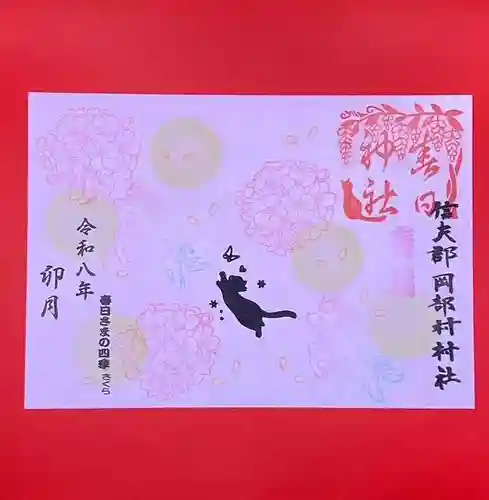 春日
神社
信夫郡岡部村村社
春日さまの四季 さくら
令和八年
卯月